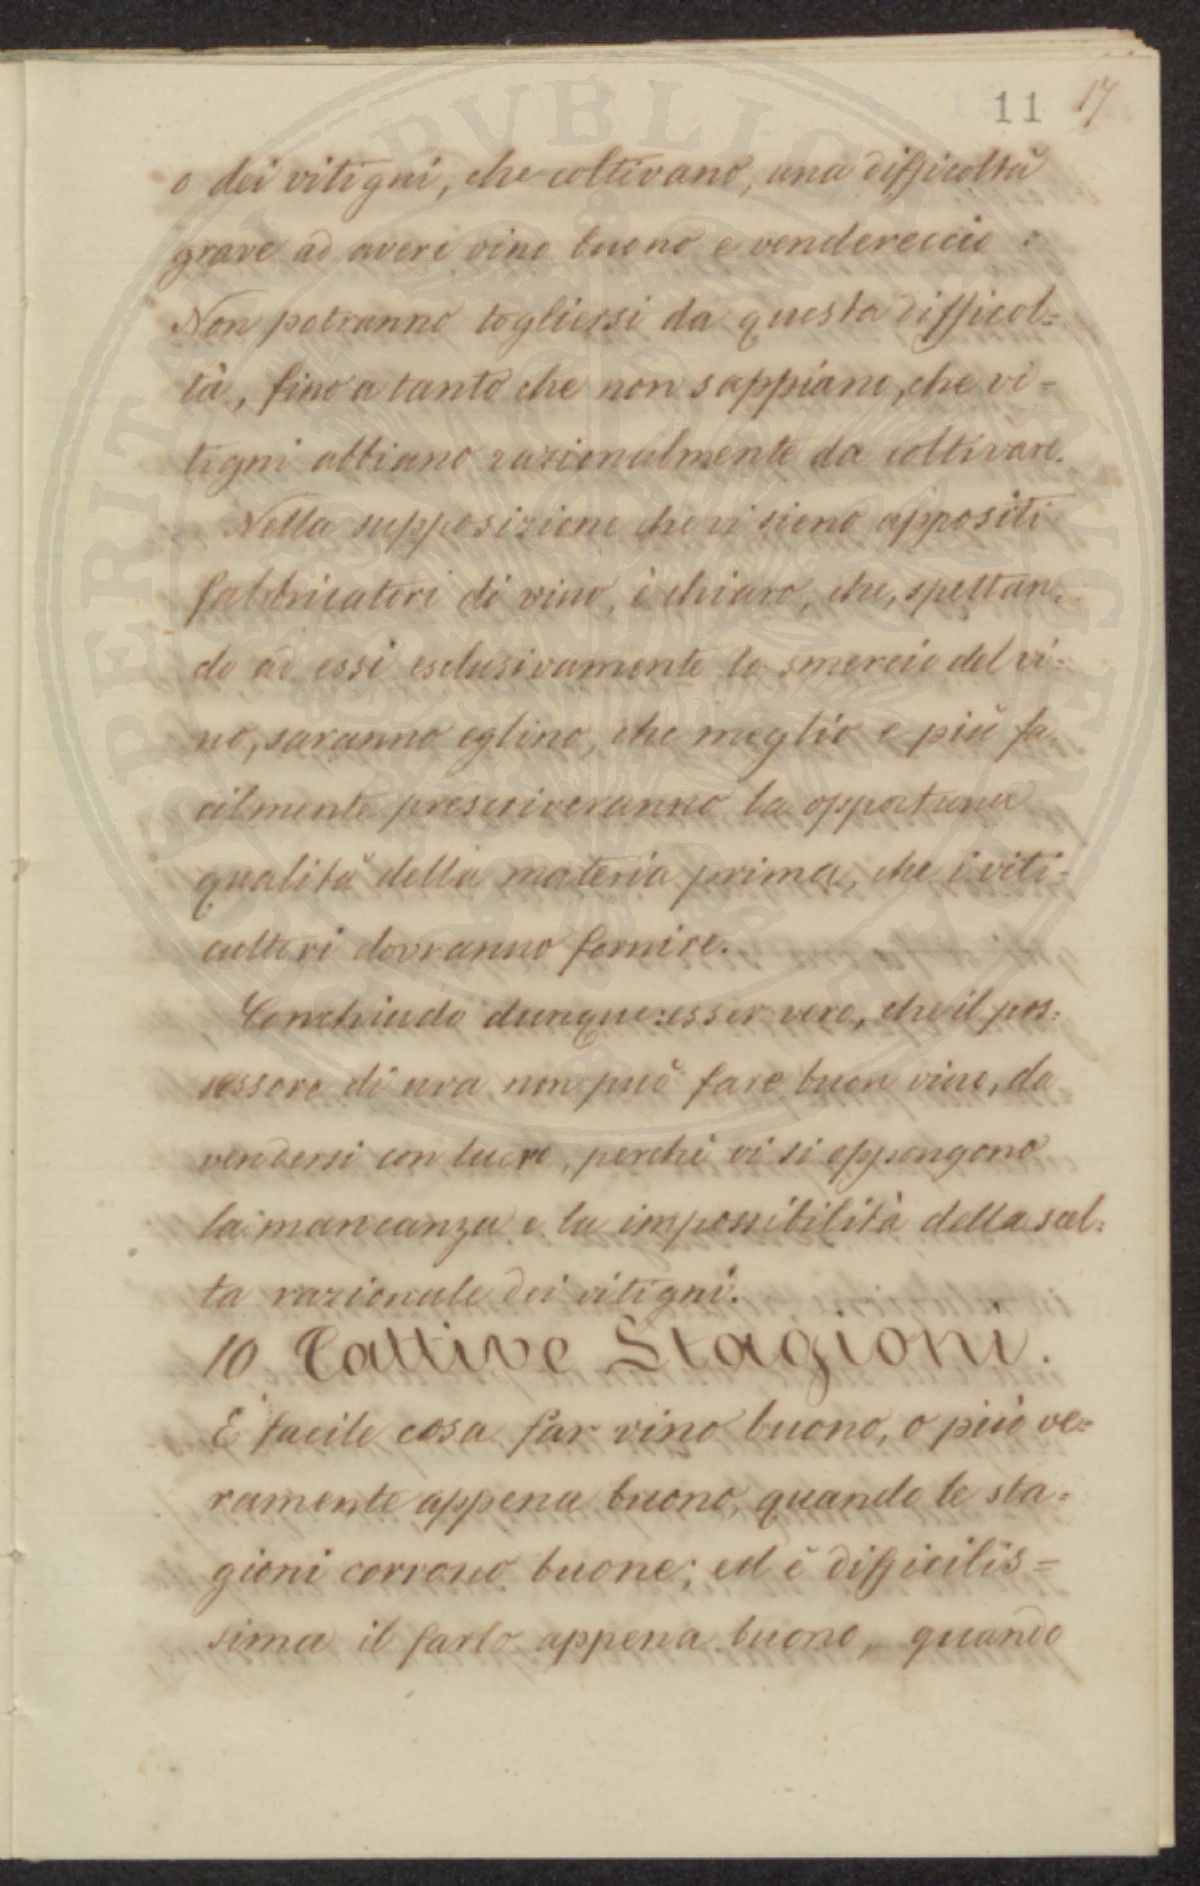 11 17
o dei vitigni, che coltivano, una difficoltà
grave ad avere vino buono e vendereccio.
Non potranno togliersi da questa difficol=
tà, fino a tanto che non sappiano, che vi=
tigni abbiano razionalmente da coltivare.
Nella supposizione che vi sieno appositi
fabbricatori di vino, è chiaro, che, spettan,
do ad essi esclusivamente lo smercio del vi=
no, saranno eglino, che meglio e più fa
cilmente prescriveranno la opportuna
qualità della materia prima, che i viti=
cultori dovranno fornire.
Conchiudo dunque: esser vero, che il pos=
sessore di uva non può fare buon vino, da
vendersi con lucro, perchè vi si oppongono
la mancanza e la impossibilità della scel=
ta razionale dei vitigni.
10 Cattive Stagioni.
È facile cosa far vino buono, o più ve=
ramente appena buono, quando le sta=
gioni corrono buone; ed è difficilis=
sima il farlo appena buono, quando
PUBLICA
VENETA